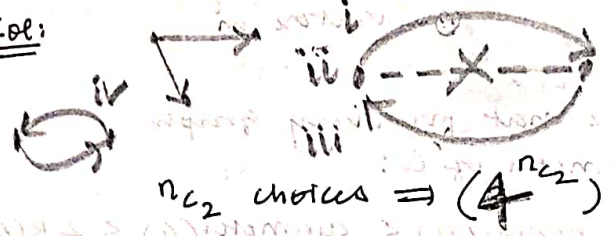 Sol:
i
ii
iii
iv
ⁿc₂ choices ⇒ (4^ⁿc₂)